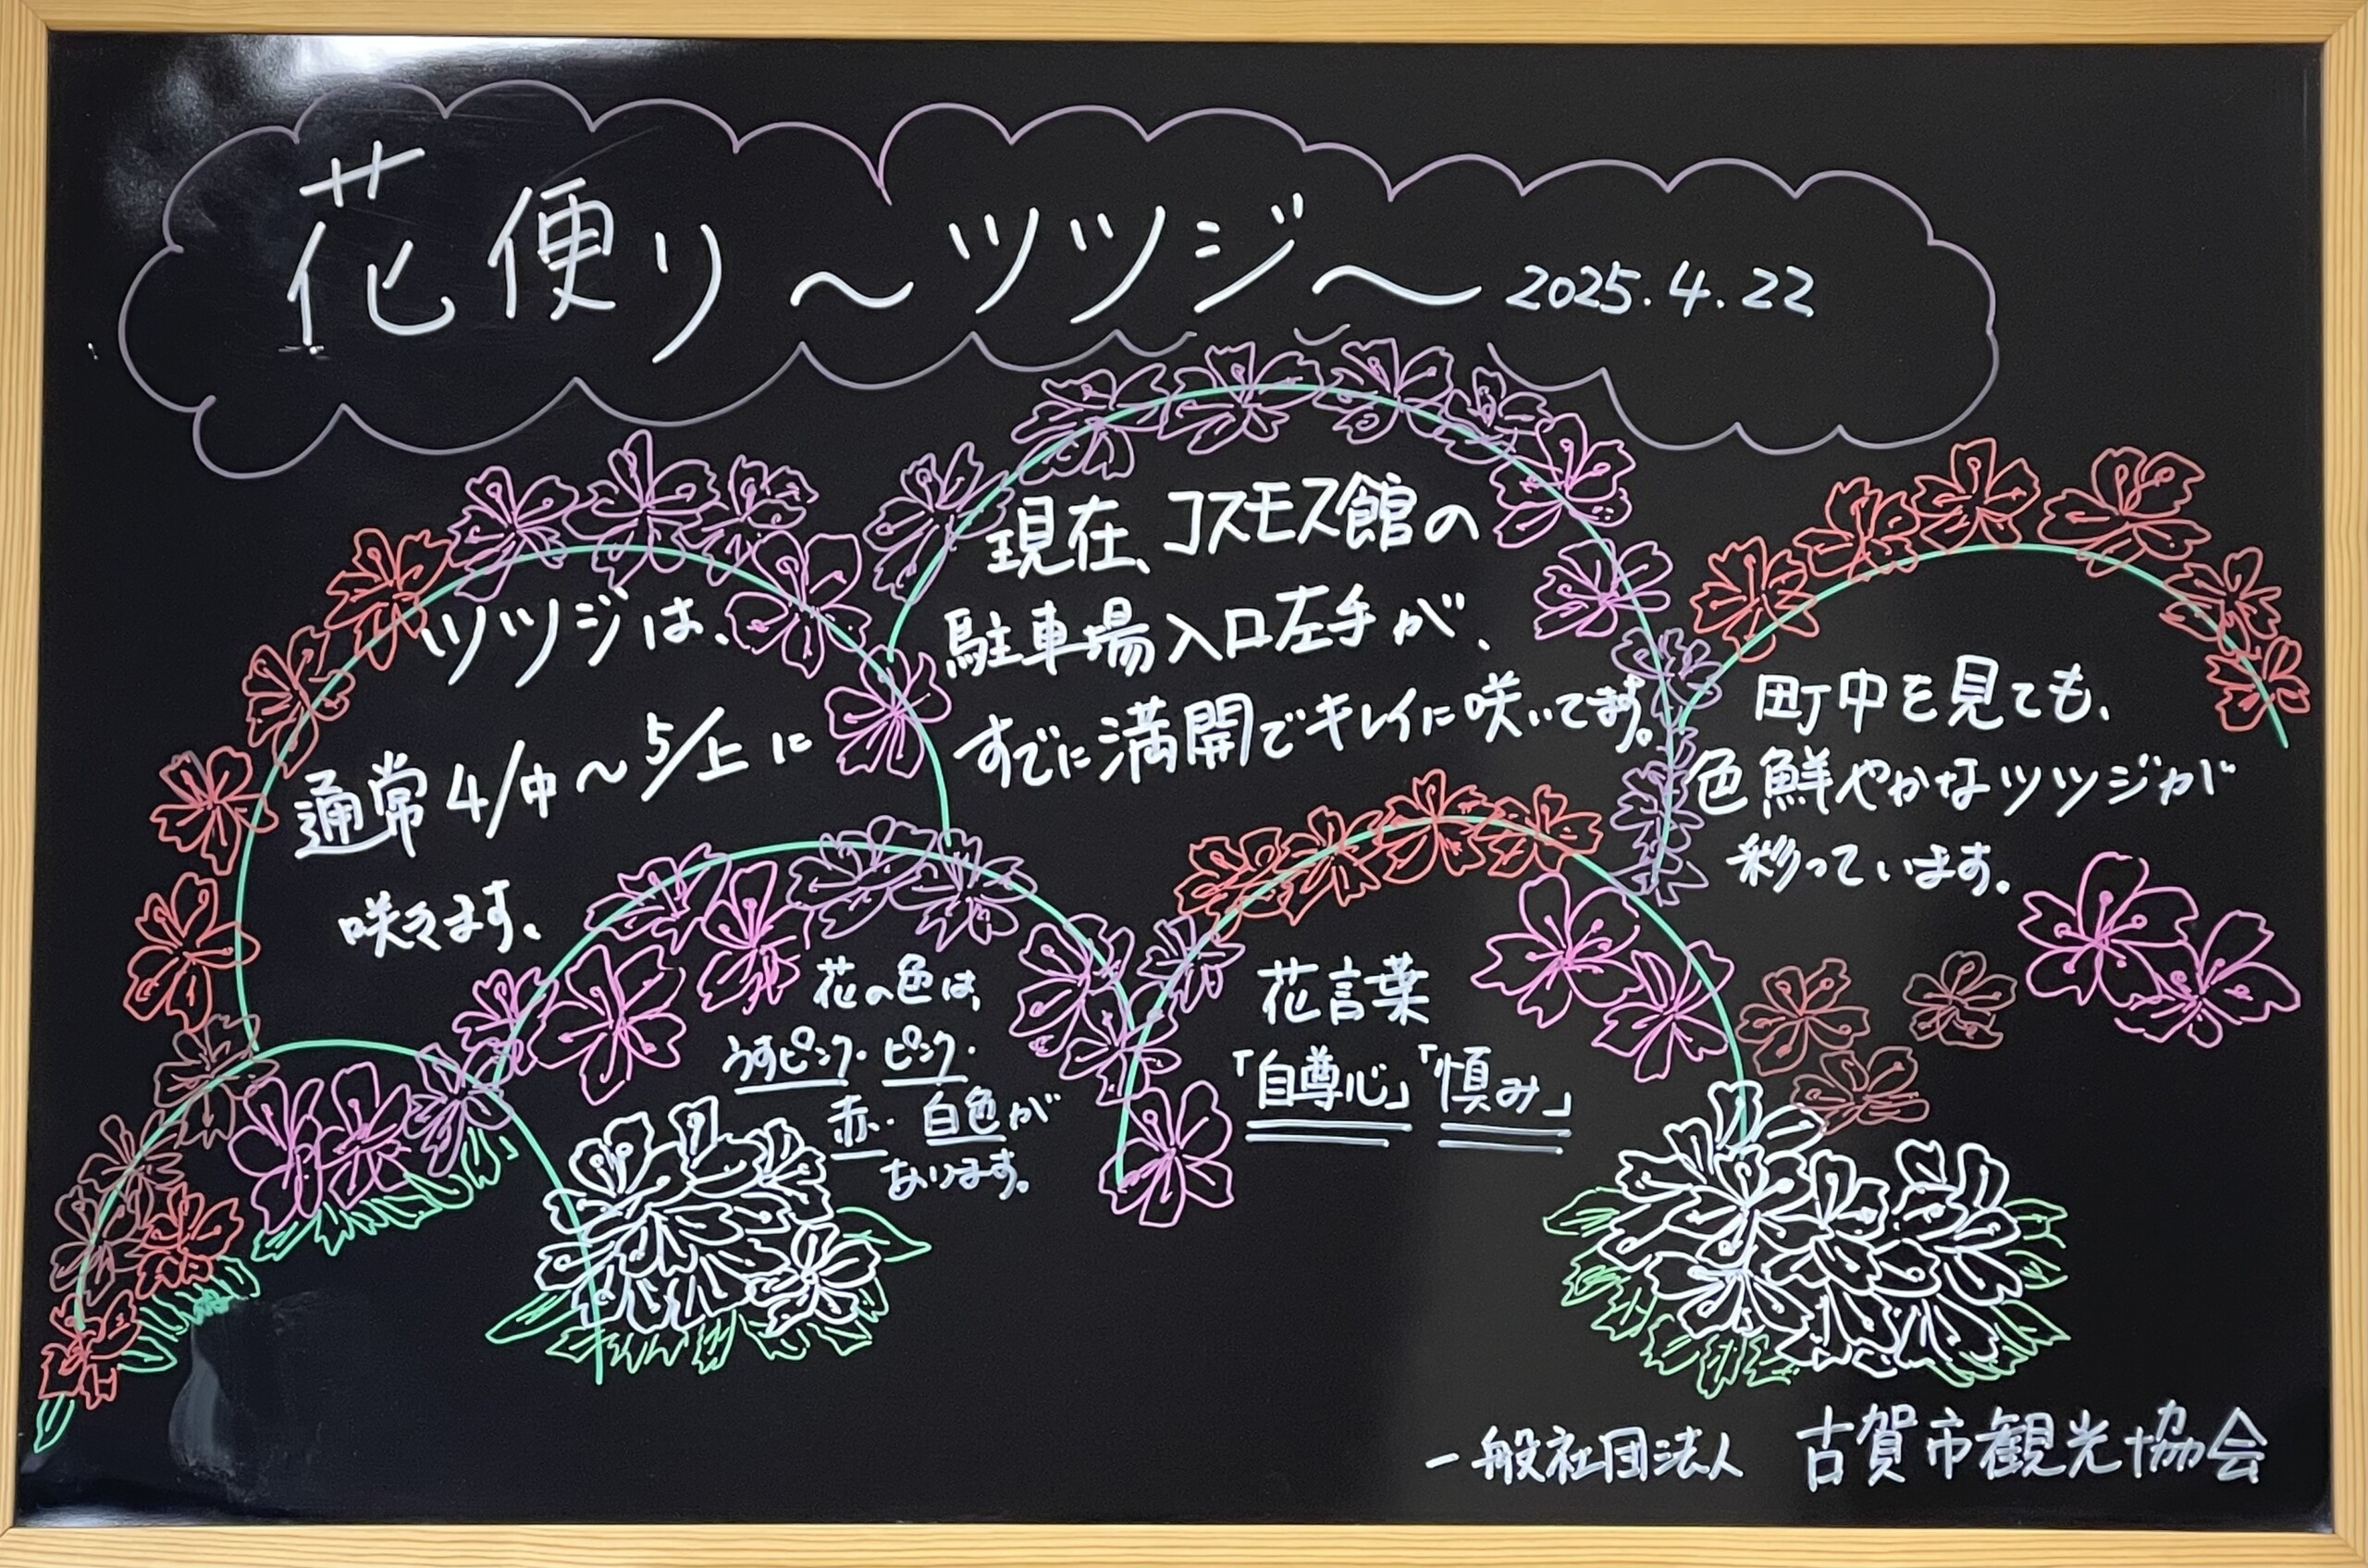 花便り～ツツジ～ 2025.4.22
ツツジは、
通常4/中～5/上に
咲きます。
現在、コスモス館の
駐車場入口左手が、
すでに満開でキレイに咲いてます。
町中を見ても、
色鮮やかなツツジが
彩っています。
花の色は、
うすピンク・ピンク・
赤・白色が
あります。
花言葉
「自尊心」「慎み」
一般社団法人 古賀市観光協会